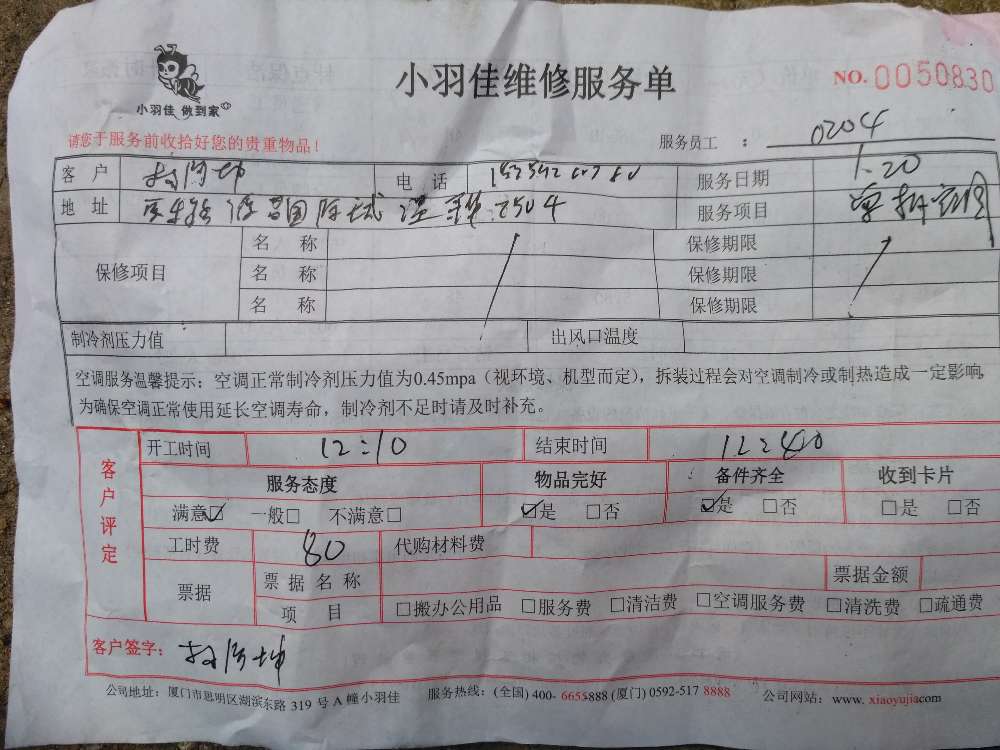 小羽佳 做到家
小羽佳维修服务单
NO. 0050830
请您于服务前收拾好您的贵重物品！
服务员工 ： 0204
客 户 电 话 服务日期 1.20
地 址 2504 服务项目
保修项目 名 称 保修期限
名 称 保修期限
名 称 保修期限
制冷剂压力值 出风口温度
空调服务温馨提示：空调正常制冷剂压力值为0.45mpa（视环境、机型而定），拆装过程会对空调制冷或制热造成一定影响，
为确保空调正常使用延长空调寿命，制冷剂不足时请及时补充。
客户评定
开工时间 12:10 结束时间 12:40
服务态度 物品完好 备件齐全 收到卡片
满意☑ 一般□ 不满意□ ☑是 □否 ☑是 □否 □是 □否
工时费 80 代购材料费
票据 票据名称 票据金额
项 目 □搬办公用品 □服务费 □清洁费 □空调服务费 □清洗费 □疏通费
客户签字：
公司地址：厦门市思明区湖滨东路 319 号 A 幢小羽佳 服务热线：(全国) 400- 6655888 (厦门) 0592-517 8888 公司网站：www. xiaoyujiacom